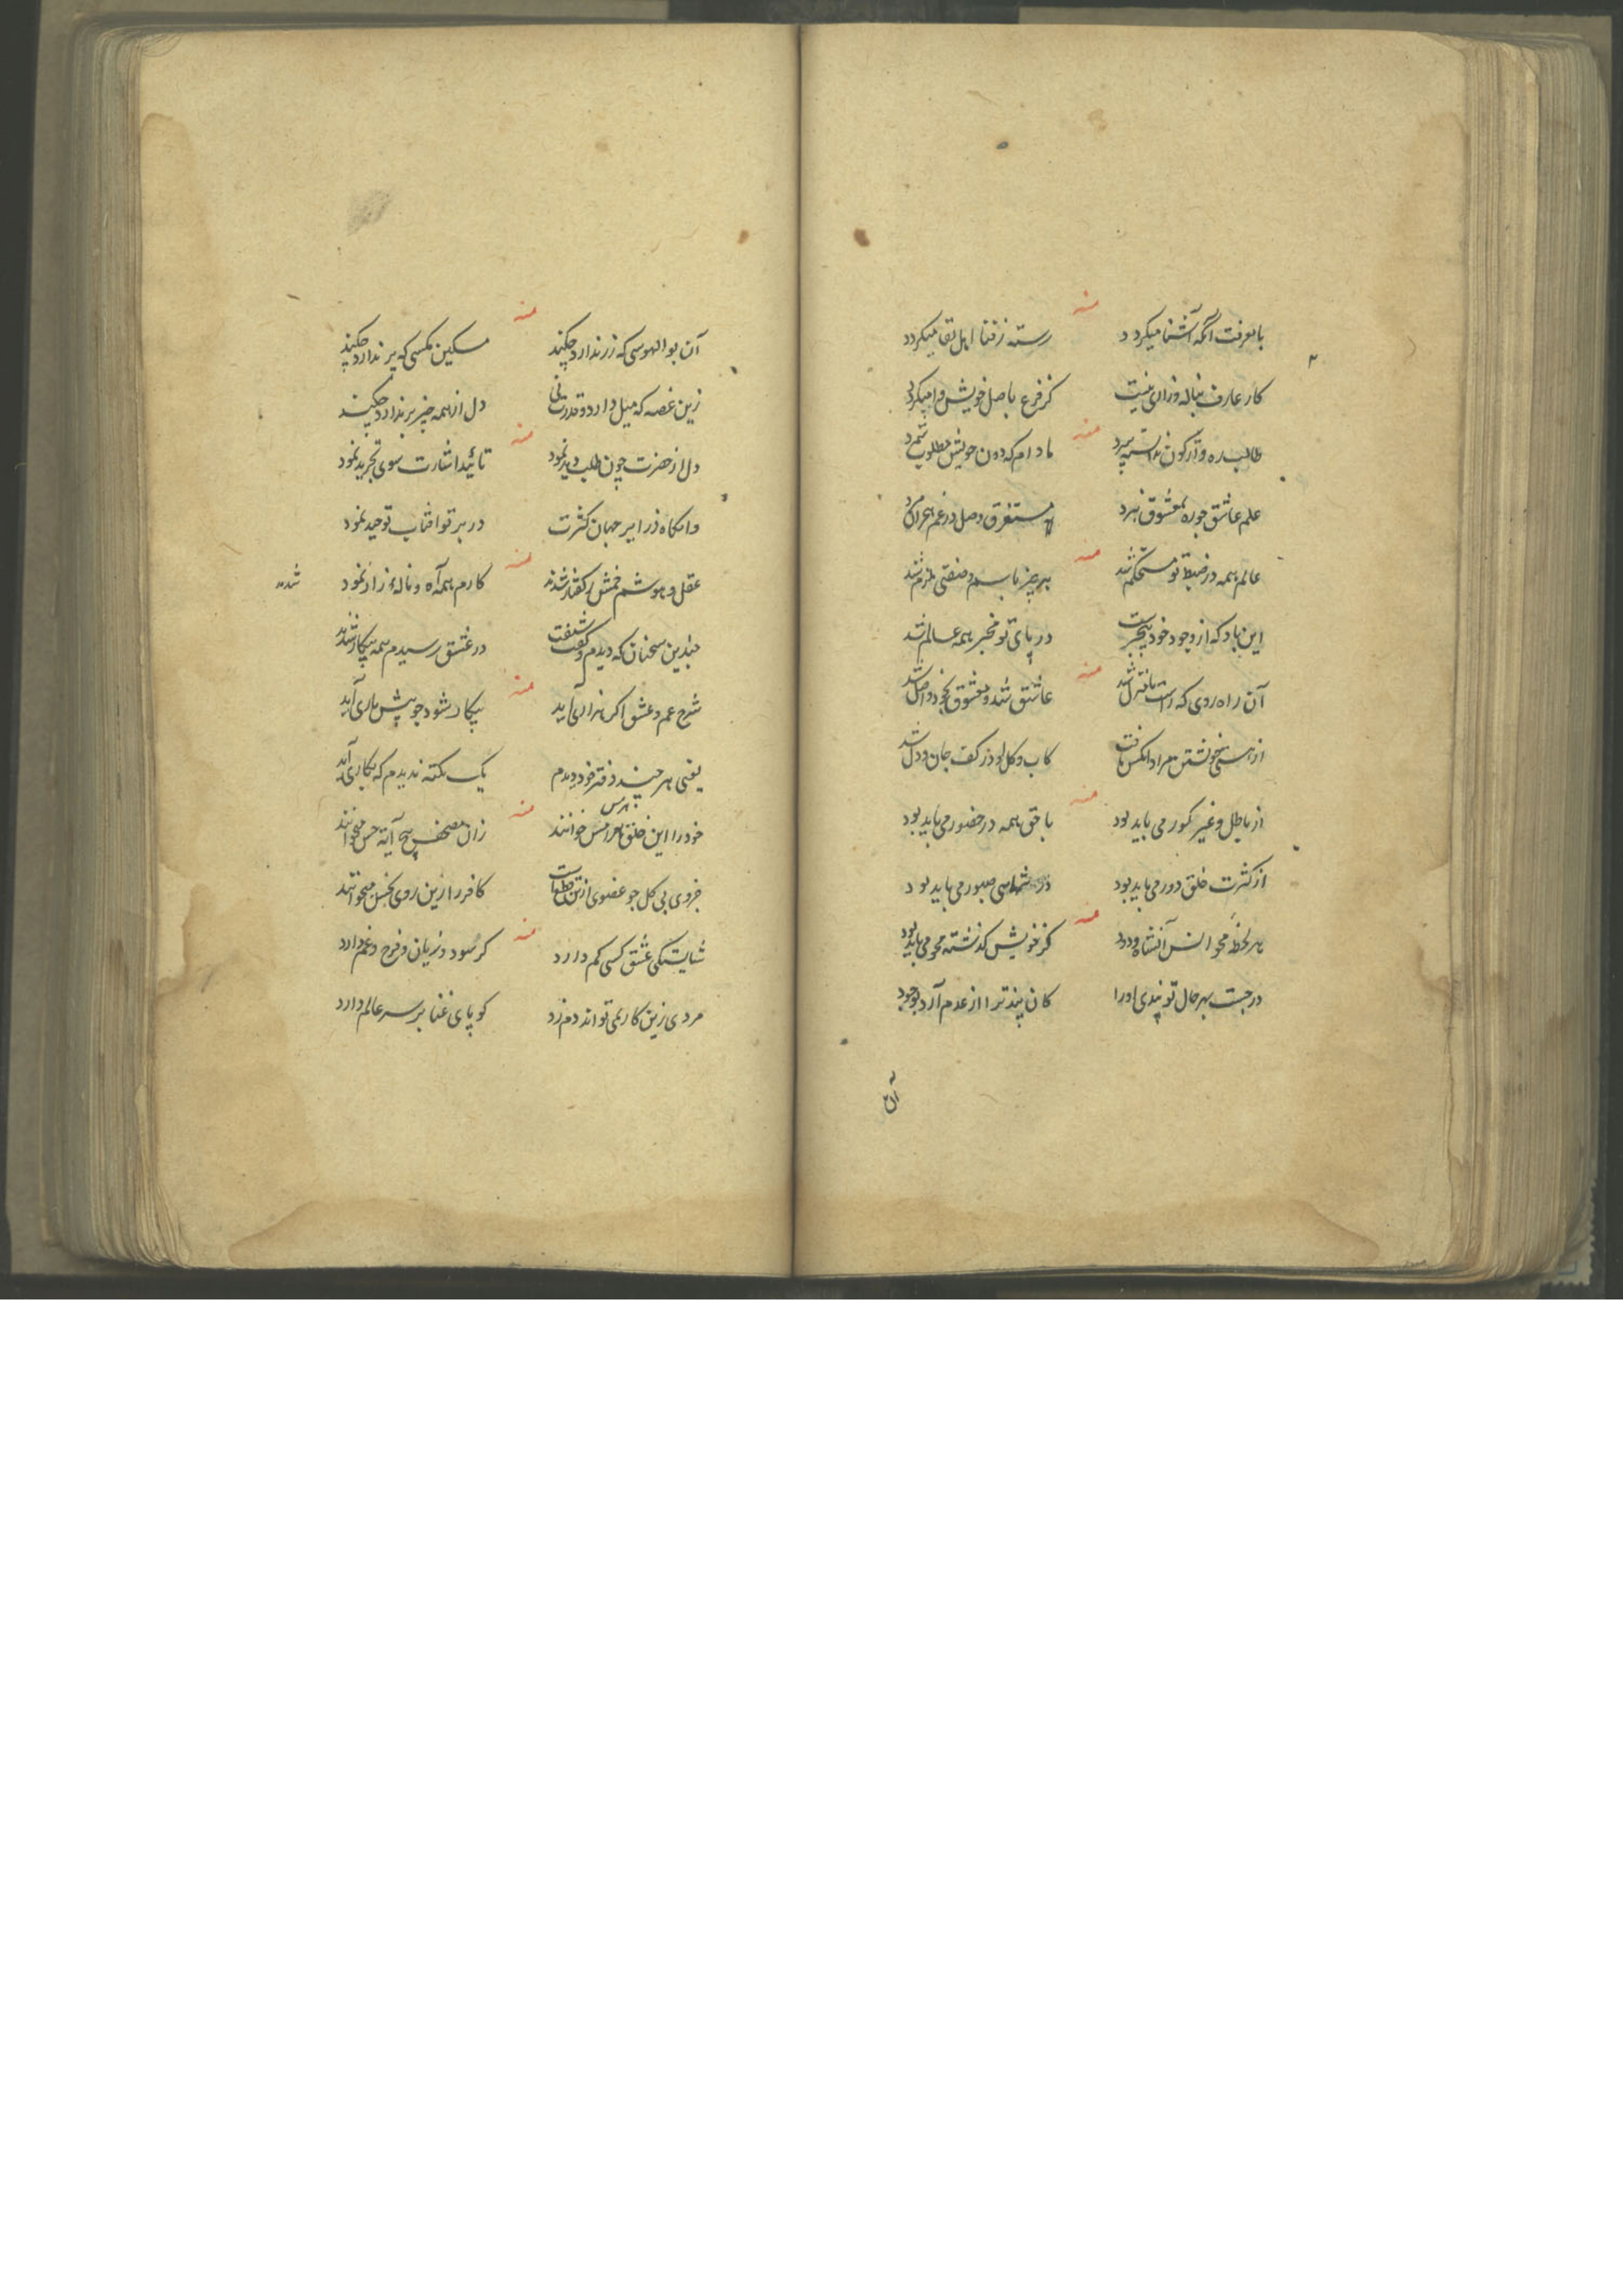 منه
با معرفت آنکه آشنا میکردد رسته ز فنا اهل بقا میکردد
کار عارف بناله و زاری نیست کز فرع باصل خویش وا میکردد
منه
طالب ره و ترک کون سپرد مادام که دون خویش مطلوب شمرد
علم عاشق چو ره بمعشوق نبرد مستغرق وصل در غم هجران مرد
منه
عالم همه در ضبط تو مستحکم شد هر چیز باسم و صفتی ملزم شد
این باد که از وجود خود بیخبرست در پای تو مخبر همه عالم شد
منه
آن راه روی که راست تا منزل شد عاشق شد و معشوق بخود واصل شد
از هستی خویشتن مراد آنکس یافت کاب و کل او ز کف جان و دل شد
منه
از باطل و غیر کور می باید بود با حق همه در حضور می باید بود
از کثرت خلق دور می باید بود در صبور می باید بود
منه
هر لحظه محو انس آن شاه ودود کز خویش کذشته محو می باید بود
در جست بهر حال تو بندی او را کان بند ترا از عدم آرد بوجود
آن
منه
آن بو الهوسی که زر ندارد چکند مسکین مکسی که پر ندارد چکند
زین غصه که میل دارد و قدرت نی دل از همه چیز بر ندارد چکند
منه
دل از حضرت چون طلب دید نمود تائید اشارت سوی تجرید نمود
وانکاه ذرایر جهان کثرت در پرتو افتاب توحید نمود
منه
عقل و هوشم خمش ز کفتار شدند کارم همه آه و ناله زار نمود شدند
چندین سخنان که دیدم و کفت شنفت در عشق رسیدم همه بیکار شدند
منه
شرح غم و عشق اکر هزاری آید بیکار شود چو پیش یاری آید
یعنی هر چند دفتر خود دیدم یک نکته ندیدم که بکاری آید
منه
خود را این خلق خوانند زان مصحف هیچ آیه حس میخوانند
جزوی بی کل چو عضوی از تن کافر را زین روی نجس میخوانند
منه
شایستکی عشق کسی کم دارد کز سود و زیان و فرح و غم دارد
مردی زین کار می تواند دم زد کو پای غنا بر سر عالم دارد